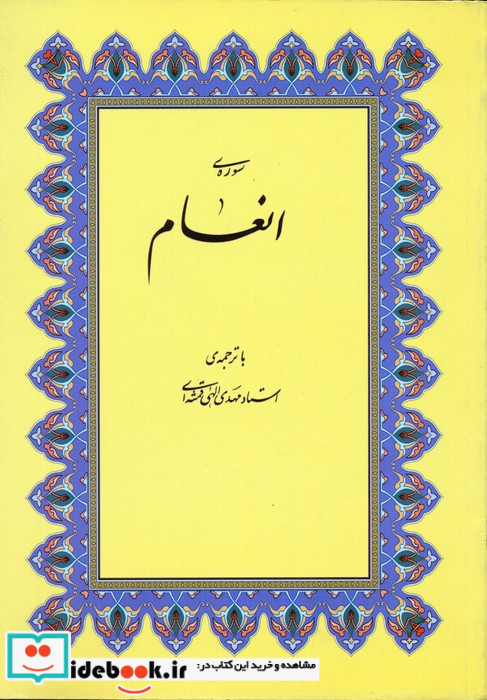 سوره‌ی
انعام
با ترجمه‌ی
استاد مهدی الهی قمشه‌ای
مشاهده و خرید این کتاب در:
idebook.ir